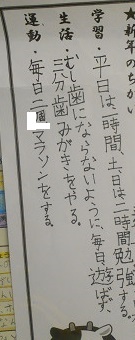 ★新年のちかい
学習・平日は一時間、土、日は二時間勉強する。
生活・むし歯にならないように、毎日遊ばず、
三分歯みがきをやる。
運動・毎日二マラソンをする。